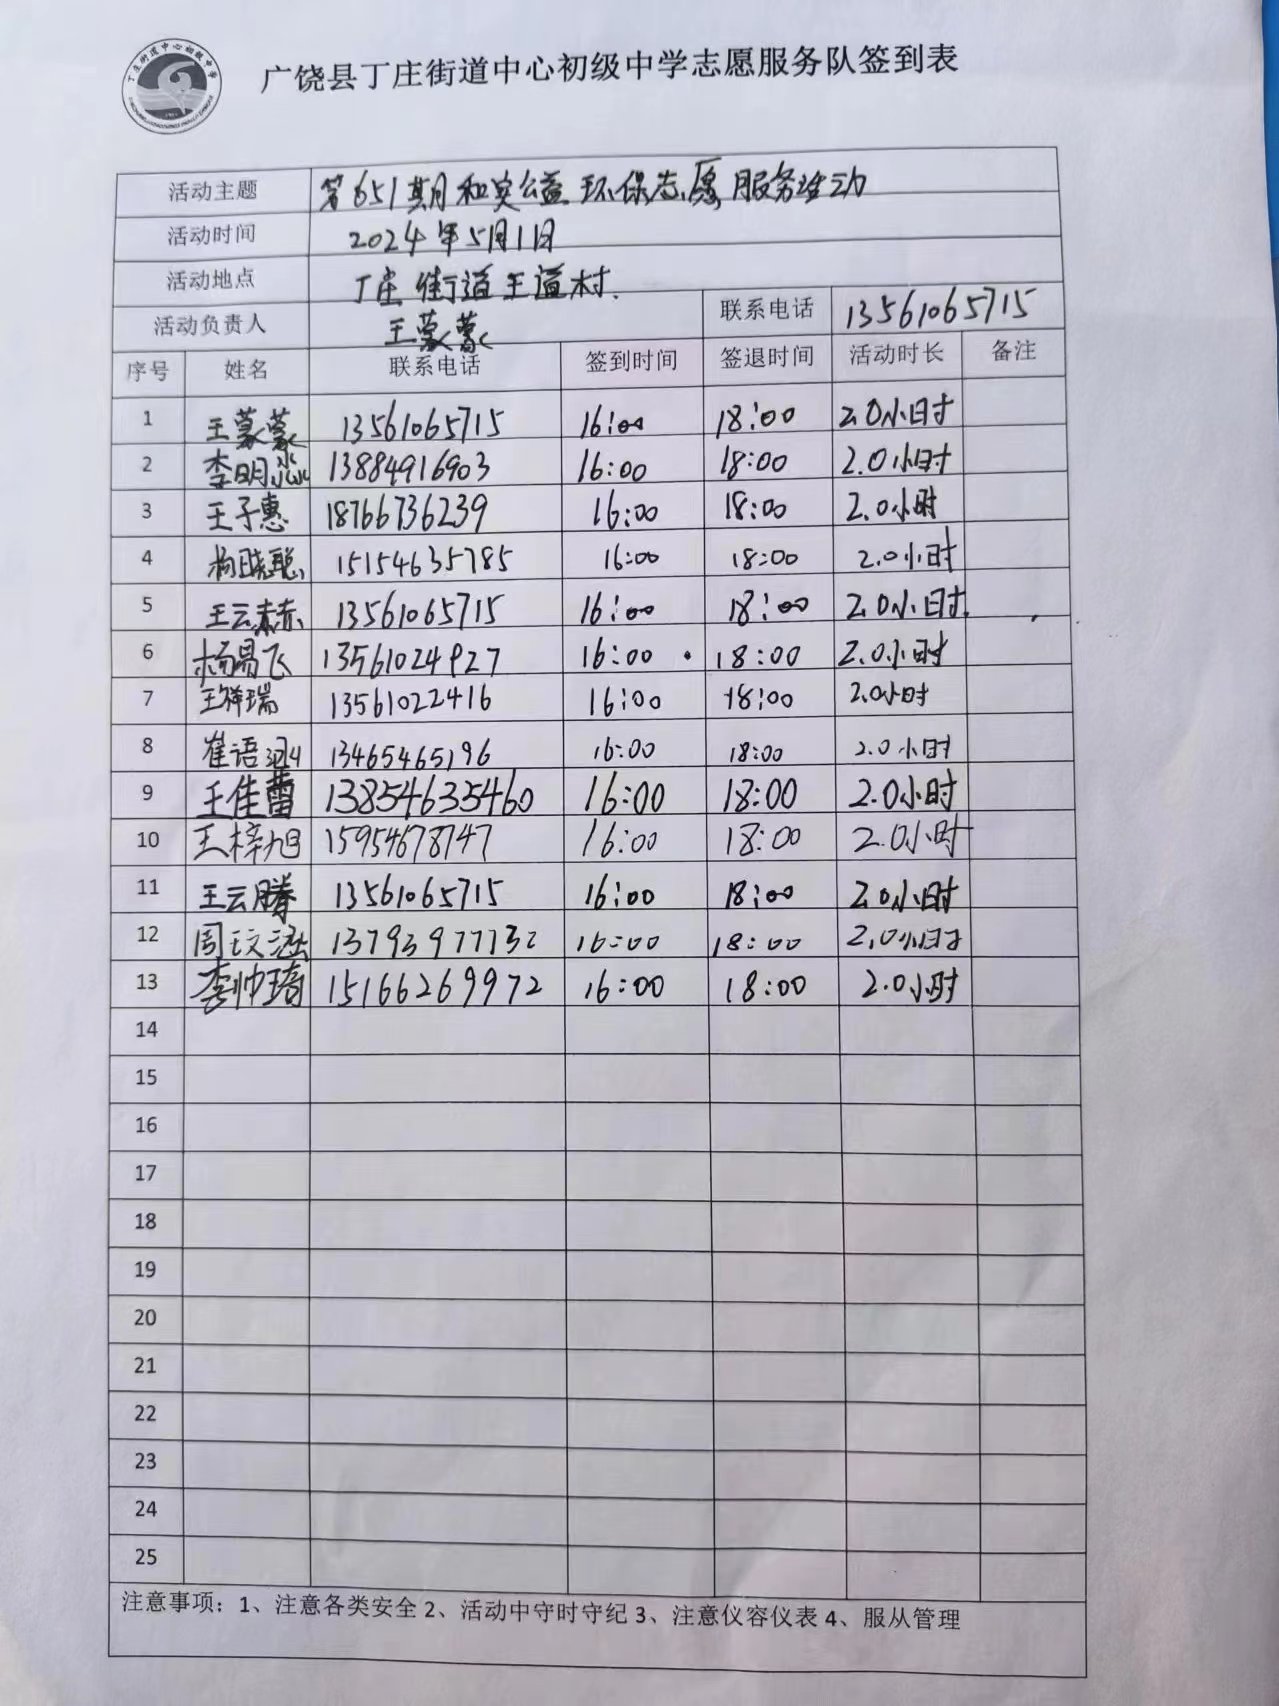 广饶县丁庄街道中心初级中学志愿服务队签到表
活动主题 第651期和美公益环保志愿服务活动
活动时间 2024年5月1日
活动地点 丁庄街道王道村.
活动负责人 王蒙蒙 联系电话 13561065715
序号 姓名 联系电话 签到时间 签退时间 活动时长 备注
1 王蒙蒙 13561065715 16:00 18:00 2.0小时
2 李明淼 13884916903 16:00 18:00 2.0小时
3 王子惠 18766736239 16:00 18:00 2.0小时
4 杨晓聪 15154635785 16:00 18:00 2.0小时
5 王云赫 13561065715 16:00 18:00 2.0小时.
6 杨易飞 13561024927 16:00 18:00 2.0小时
7 王祥瑞 13561022416 16:00 18:00 2.0小时
8 崔语 13465465196 16:00 18:00 2.0小时
9 王佳蕾 13854635460 16:00 18:00 2.0小时
10 王梓旭 15954678747 16:00 18:00 2.0小时
11 王云腾 13561065715 16:00 18:00 2.0小时
12 周文涵 13793977132 16:00 18:00 2.0小时
13 李帅琦 15166269972 16:00 18:00 2.0小时
14
15
16
17
18
19
20
21
22
23
24
25
注意事项：1、注意各类安全 2、活动中守时守纪 3、注意仪容仪表 4、服从管理